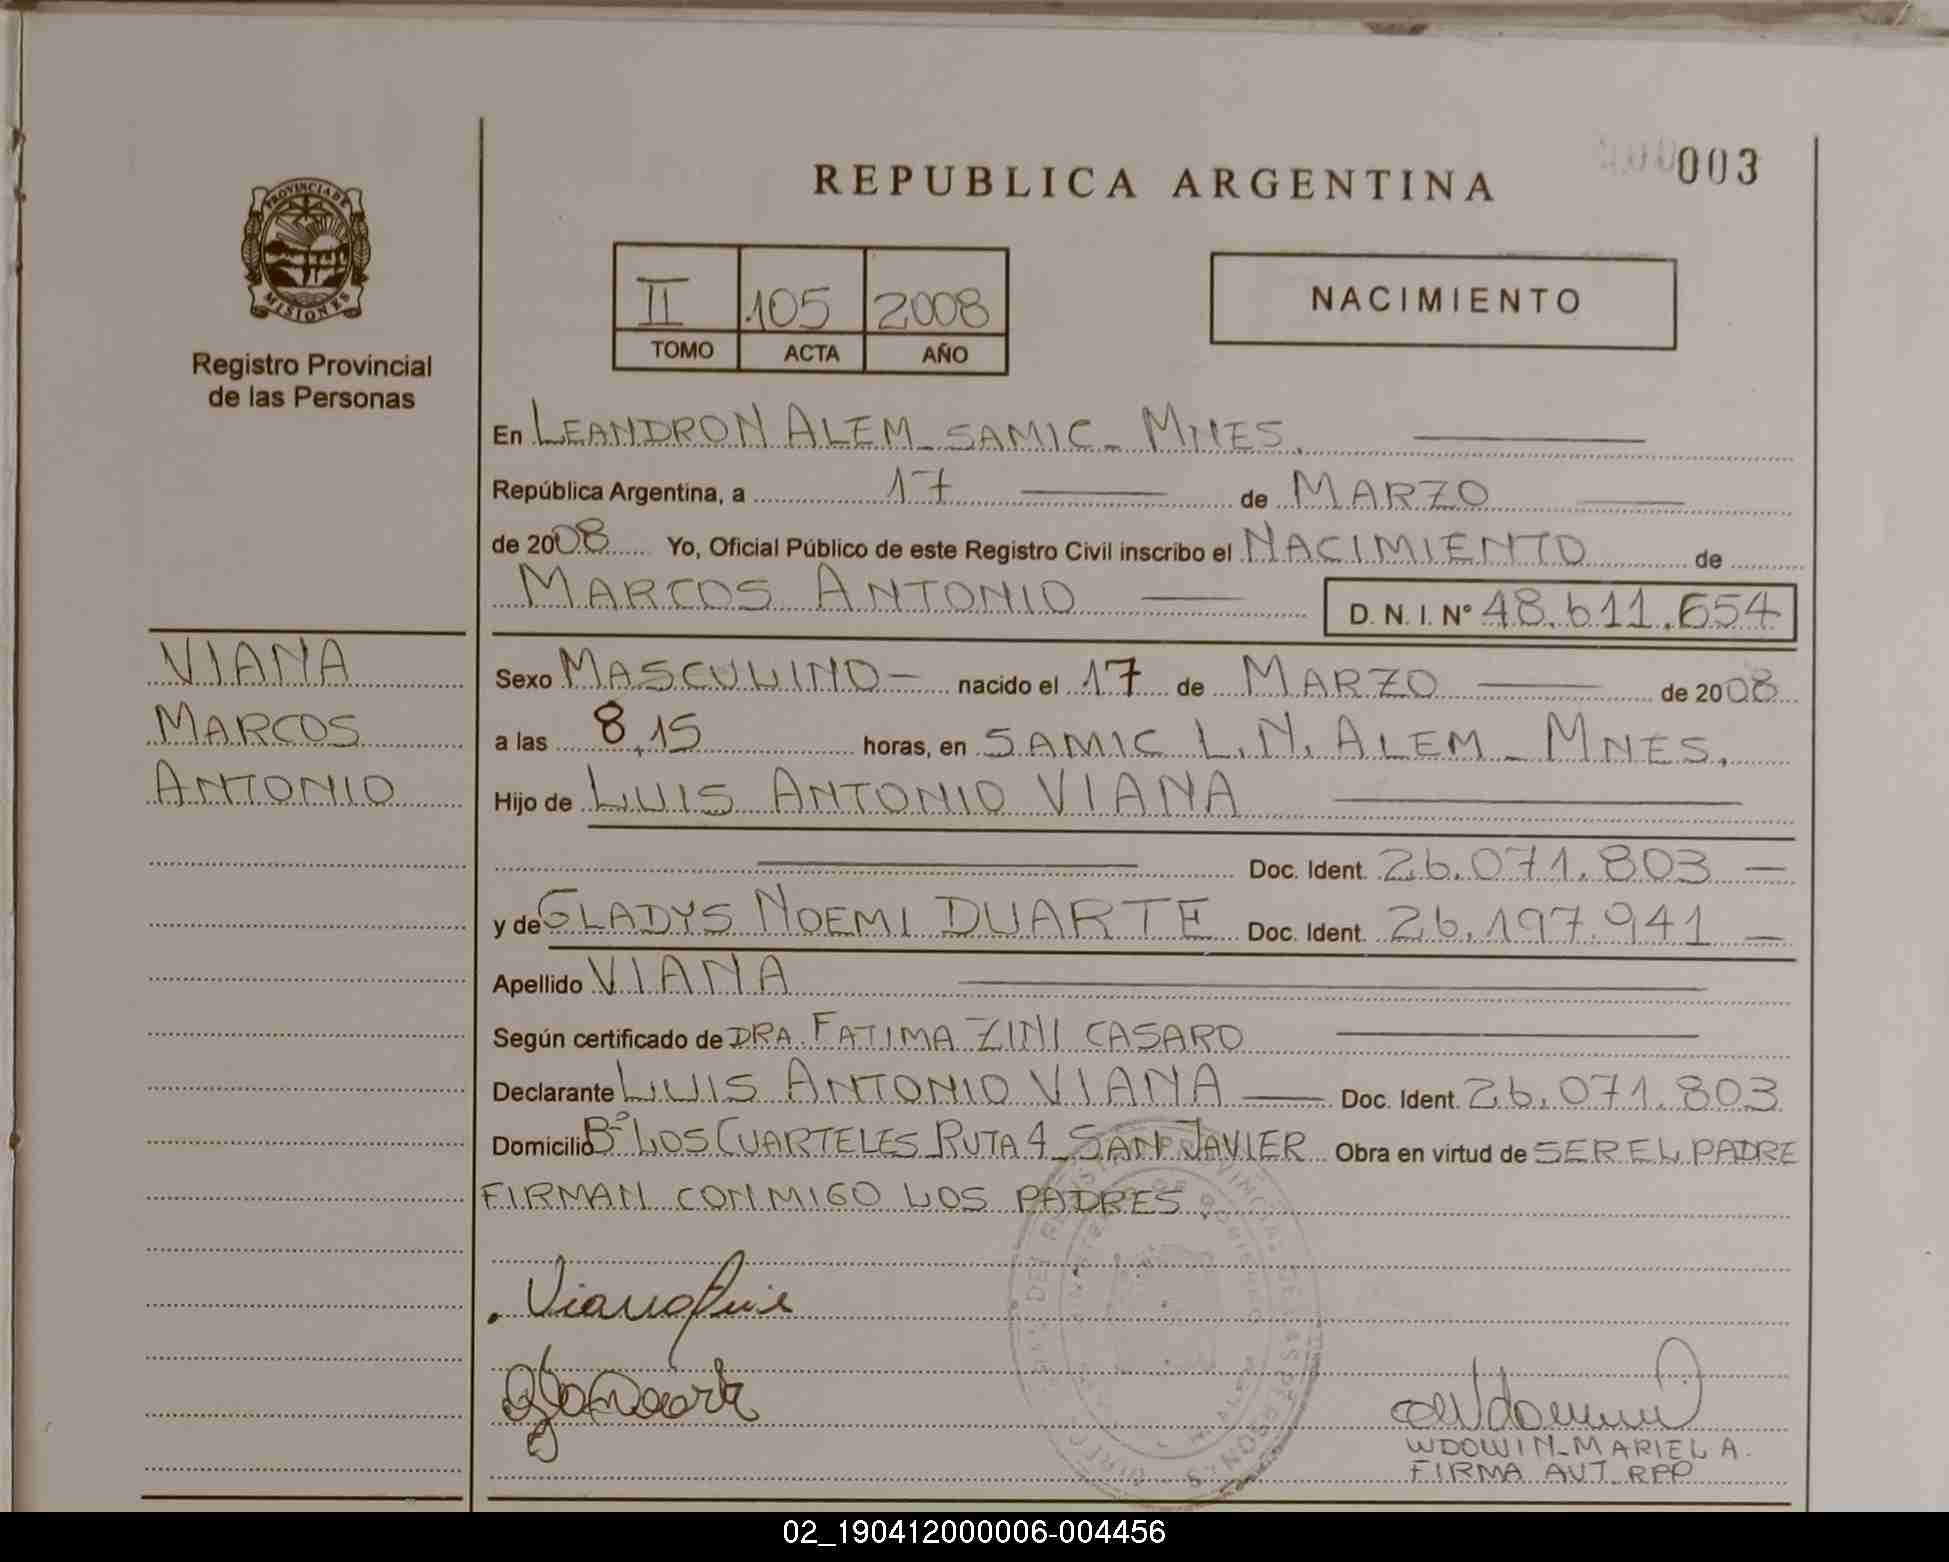 003
REPUBLICA ARGENTINA
PROVINCIA DE
MISIONES
Registro Provincial
de las Personas
II 105 2008
TOMO ACTA AÑO
NACIMIENTO
En LEANDRO N ALEM - SAMIC - MNES.
República Argentina, a 17 de MARZO
de 2008 Yo, Oficial Público de este Registro Civil inscribo el NACIMIENTO de
MARCOS ANTONIO D. N. I. Nº 48.611.654
VIANA
MARCOS
ANTONIO
Sexo MASCULINO - nacido el 17 de MARZO de 2008
a las 8,15 horas, en SAMIC L.N. ALEM - MNES.
Hijo de LUIS ANTONIO VIANA
Doc. Ident. 26.071.803 -
y de GLADYS NOEMI DUARTE Doc. Ident. 26.197.941 -
Apellido VIANA
Según certificado de DRA. FATIMA ZINI CASARO
Declarante LUIS ANTONIO VIANA Doc. Ident. 26.071.803
Domicilio Bº LOS CUARTELES RUTA 4 - SAN JAVIER Obra en virtud de SER EL PADRE
FIRMAN CONMIGO LOS PADRES.
Viana Luis
WDOWIN - MARIEL A.
FIRMA AUT. RPP
02_190412000006-004456